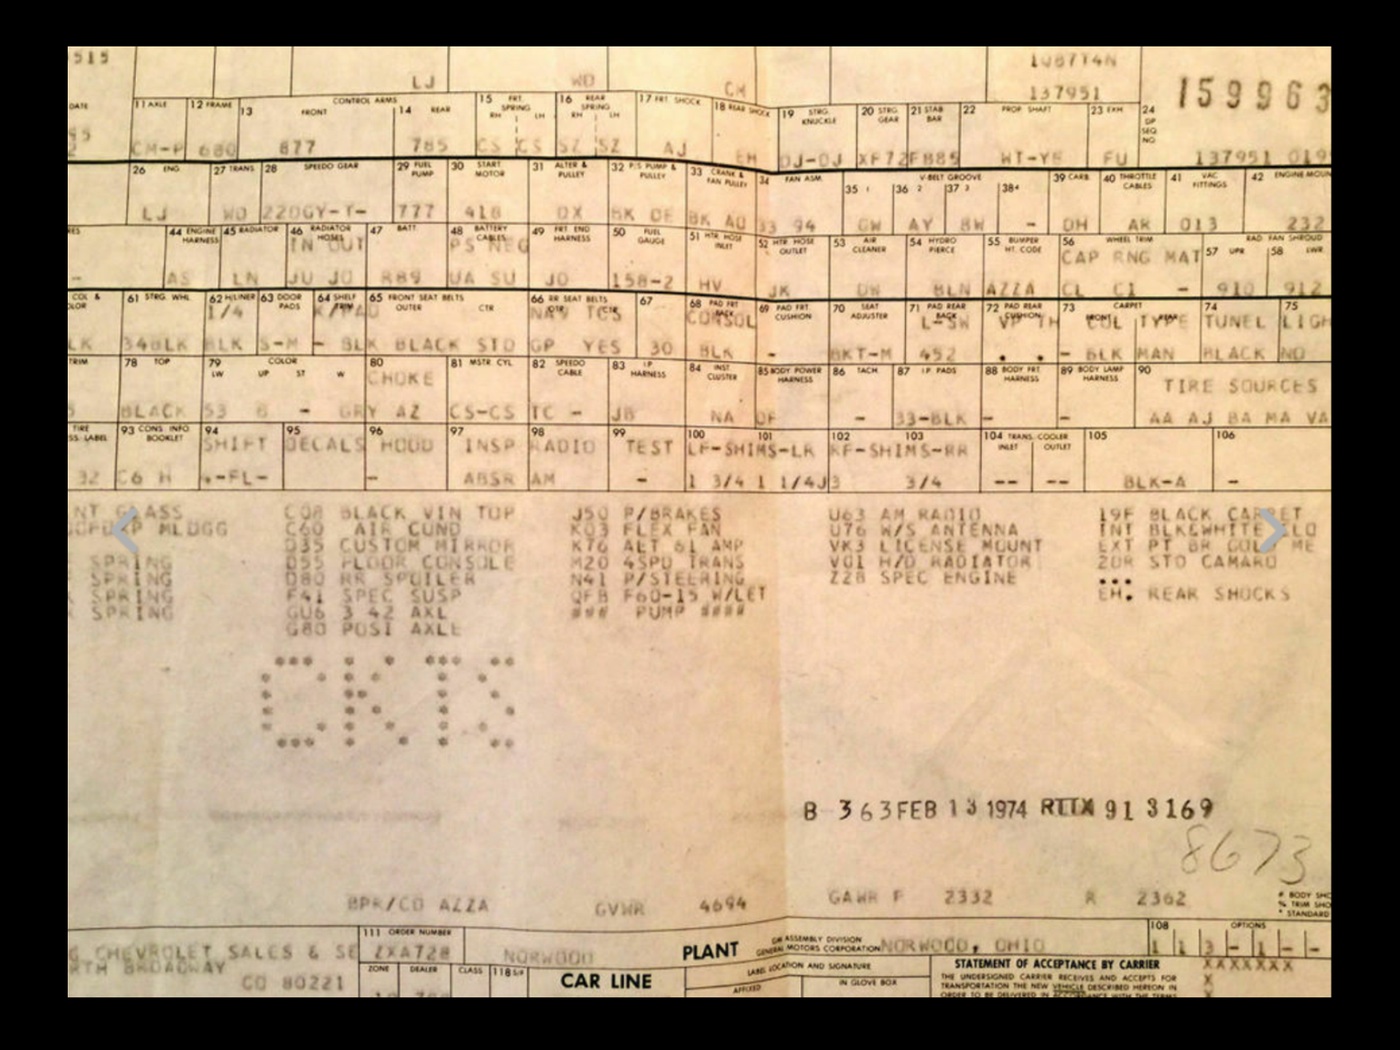 515 LJ WD CM 108774N
137951 159963
DATE 11 AXLE 12 FRAME 13 FRONT CONTROL ARMS 14 REAR 15 FRT. SPRING RH LH 16 REAR SPRING RH LH 17 FRT. SHOCK 18 REAR SHOCK 19 STRG. KNUCKLE 20 STRG GEAR 21 STAB BAR 22 PROP SHAFT 23 EXH 24 GP SEQ NO
CM-P 680 877 785 CS CS SZ SZ AJ EH DJ-DJ XF72FB85 WT-YE FU 137951 019
26 ENG 27 TRANS 28 SPEEDO GEAR 29 FUEL PUMP 30 START MOTOR 31 ALTER & PULLEY 32 P/S PUMP & PULLEY 33 CRANK & FAN PULLEY 34 FAN ASM. V-BELT GROOVE 35 1 36 2 37 3 38 4 39 CARB 40 THROTTLE CABLES 41 VAC FITTINGS 42 ENGINE MOUN
LJ WD 22DGY-T- 777 418 DX BK DE BK AU 33 94 GW AY BW - DH AK 013 232
44 ENGINE HARNESS 45 RADIATOR 46 RADIATOR HOSES 47 BATT. 48 BATTERY CABLES 49 FRT. END HARNESS 50 FUEL GAUGE 51 HTR HOSE INLET 52 HTR HOSE OUTLET 53 AIR CLEANER 54 HYDRO PIERCE 55 BUMPER HT. CODE 56 WHEEL TRIM RAD. FAN SHROUD 57 UPR 58 LWR
IN OUT PS NEG CAP RNG MAT
- AS LN JU JO R89 UA SU JD 158-2 HV JK UW BLN AZZA CL C1 - 910 912
COL & 61 STRG. WHL 62 H/LINER 63 DOOR PADS 64 SHELF TRIM 65 FRONT SEAT BELTS OUTER CTR 66 RR SEAT BELTS 67 68 PAD FRT BACK 69 PAD FRT CUSHION 70 SEAT ADJUSTER 71 PAD REAR BACK 72 PAD REAR CUSHION 73 CARPET FRONT REAR 74 75
1/4 K/PAD NAV TCS CONSOL L-SW VP TH COL TYPE TUNEL LIGH
LK 348LK BLK S-M - BLK BLACK STD GP YES 30 BLK - BKT-M 452 . . - BLK MAN BLACK NO
TRIM 78 TOP 79 COLOR LW UP ST W 80 81 MSTR CYL 82 SPEEDO CABLE 83 I.P. HARNESS 84 INST. CLUSTER 85 BODY POWER HARNESS 86 TACH. 87 I.P. PADS 88 BODY FRT. HARNESS 89 BODY LAMP HARNESS 90
CHOKE TIRE SOURCES
BLACK 53 B - GRY AZ CS-CS TC - JB NA DF - 33-BLK - - AA AJ BA MA VA
TIRE LABEL 93 CONS. INFO. BOOKLET 94 95 96 97 98 99 100 101 102 103 104 TRANS. COOLER INLET OUTLET 105 106
SHIFT DECALS HOOD INSP RADIO TEST LF-SHIMS-LR RF-SHIMS-RR
32 C6 H *-FL- - ABSR AM - 1 3/4 1 1/4J3 3/4 -- -- BLK-A -
NT GLASS C08 BLACK VIN TOP J50 P/BRAKES U63 AM RADIO 19F BLACK CARPET
MLDGG C60 AIR COND K03 FLEX FAN U76 W/S ANTENNA INT BLK&WHITE CLO
D35 CUSTOM MIRROR K76 ALT 61 AMP VK3 LICENSE MOUNT EXT PT BR GOLD ME
SPRING D55 FLOOR CONSOLE M20 4SPD TRANS V01 H/D RADIATOR 20R STD CAMARO
SPRING D80 RR SPOILER N41 P/STEERING Z28 SPEC ENGINE •••
SPRING F41 SPEC SUSP QFB F60-15 W/LET EH. REAR SHOCKS
SPRING GU6 3 42 AXL ### PUMP ####
G80 POSI AXLE
B 363 FEB 13 1974 RTIX 91 3169
8673
BPR/CD AZZA GVWR 4694 GAWR F 2332 R 2362 # BODY SHO
% TRIM SHO
* STANDARD
111 ORDER NUMBER PLANT GM ASSEMBLY DIVISION 108 OPTIONS
G CHEVROLET SALES & SE ZXA728 NORWOOD GENERAL MOTORS CORPORATION NORWOOD, OHIO 1 1 3 - 1 - -
RTH BROADWAY ZONE DEALER CLASS 118 CAR LINE LABEL LOCATION AND SIGNATURE STATEMENT OF ACCEPTANCE BY CARRIER XXXXXXX
CO 80221 AFFIXED IN GLOVE BOX THE UNDERSIGNED CARRIER RECEIVES AND ACCEPTS FOR X
TRANSPORTATION THE NEW VEHICLE DESCRIBED HEREON IN X
ORDER TO BE DELIVERED IN ACCORDANCE WITH THE TERMS X